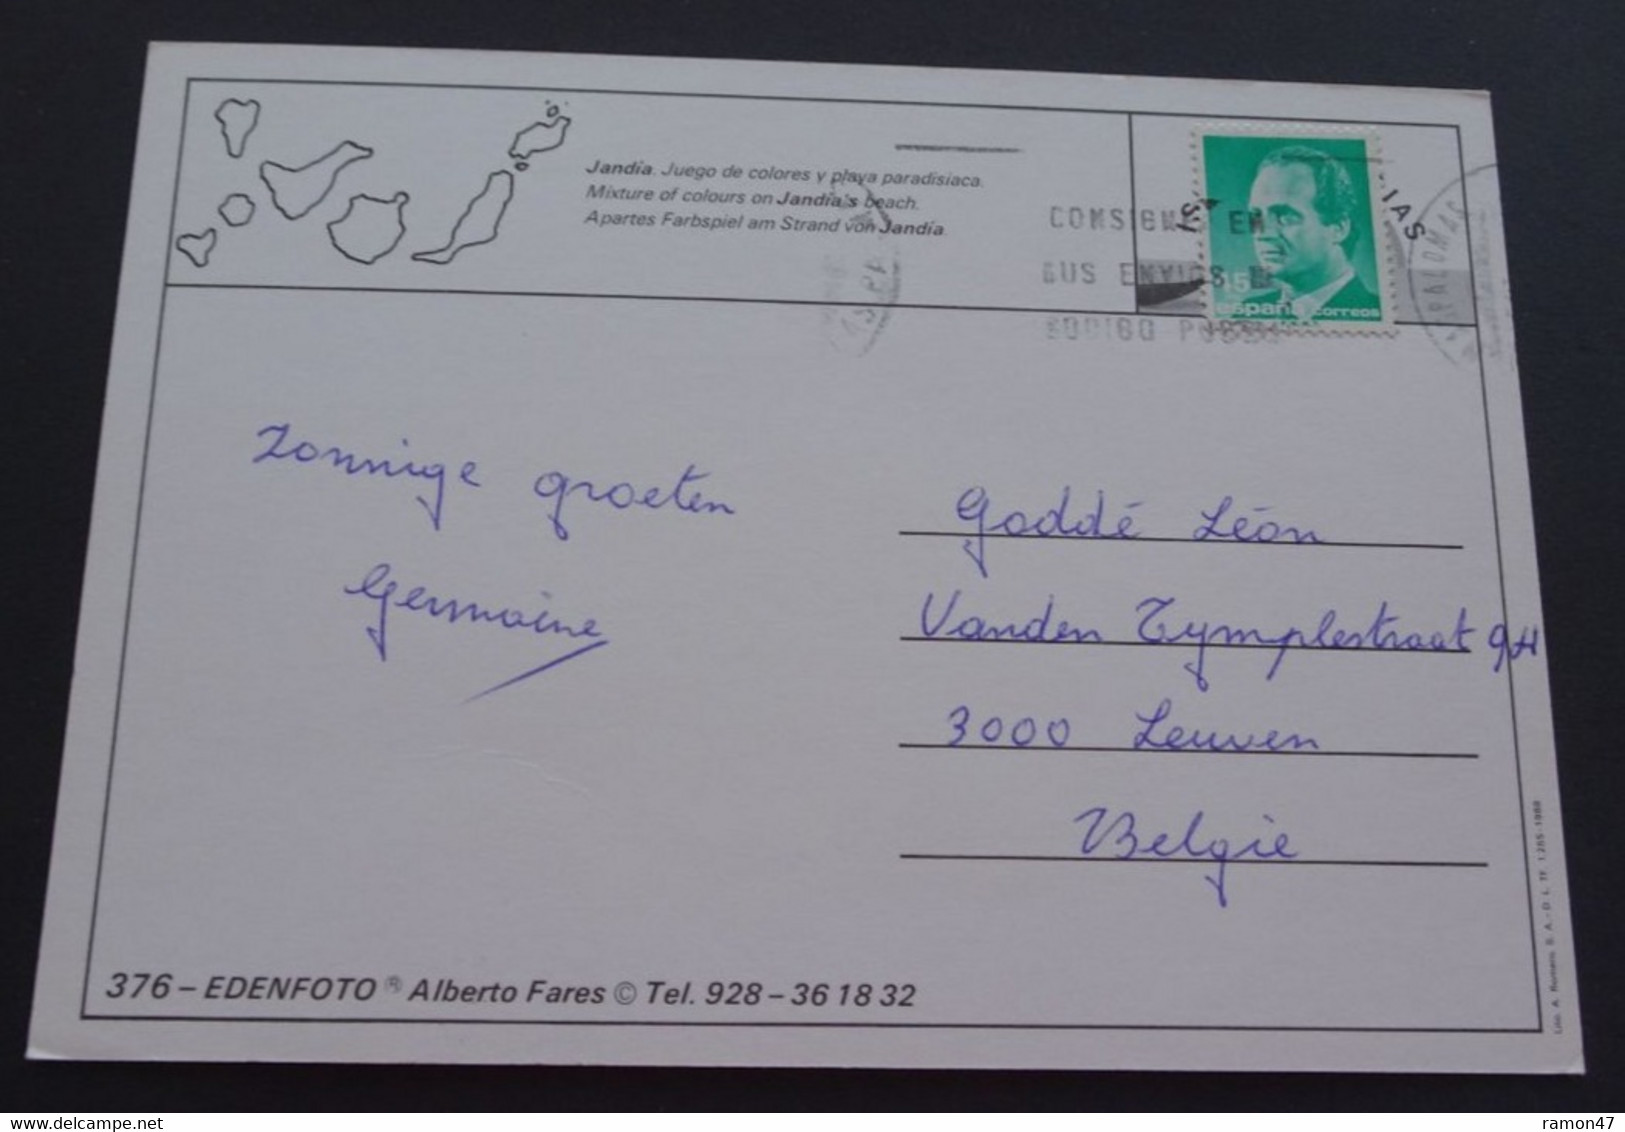 Jandía. Juego de colores y playa paradisiaca.
Mixture of colours on Jandía's beach.
Apartes Farbspiel am Strand von Jandía.
CONSIGNE EN
SUS ENVIOS EL
CODIGO POSTAL
15
españa correos
Zonnige groeten
Germaine
Goddé Léon
Vanden Tymplestraat 94
3000 Leuven
België
376 – EDENFOTO ® Alberto Fares © Tel. 928 – 36 18 32
Lito. A. Romero, S. A. - D. L. TF. 1.265-1988
ramon47